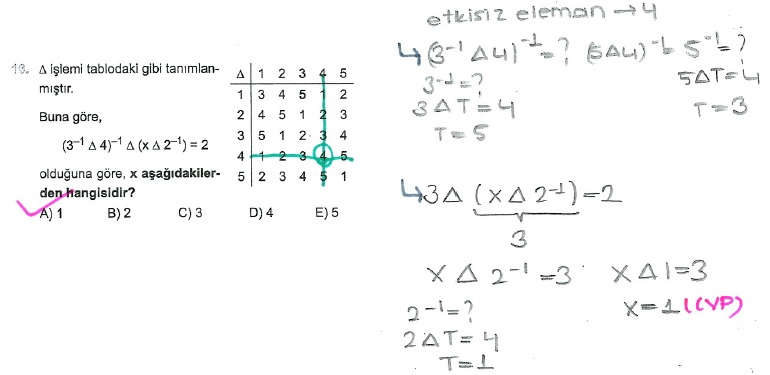 16. Δ işlemi tablodaki gibi tanımlan-
mıştır.
Buna göre,
(3⁻¹ Δ 4)⁻¹ Δ (x Δ 2⁻¹) = 2
olduğuna göre, x aşağıdakiler-
den hangisidir?
A) 1 B) 2 C) 3 D) 4 E) 5
Δ 1 2 3 4 5
1 3 4 5 1 2
2 4 5 1 2 3
3 5 1 2 3 4
4 1 2 3 4 5
5 2 3 4 5 1
etkisiz eleman → 4
↳ (3⁻¹ Δ 4)⁻¹ = ? (5 Δ 4)⁻¹ = 5⁻¹ = ?
3⁻¹ = ?
3 Δ T = 4
T = 5
5 Δ T = 4
T = 3
↳ 3 Δ (x Δ 2⁻¹) = 2
3
x Δ 2⁻¹ = 3
2⁻¹ = ?
2 Δ T = 4
T = 1
x Δ 1 = 3
x = 1 (CVP)